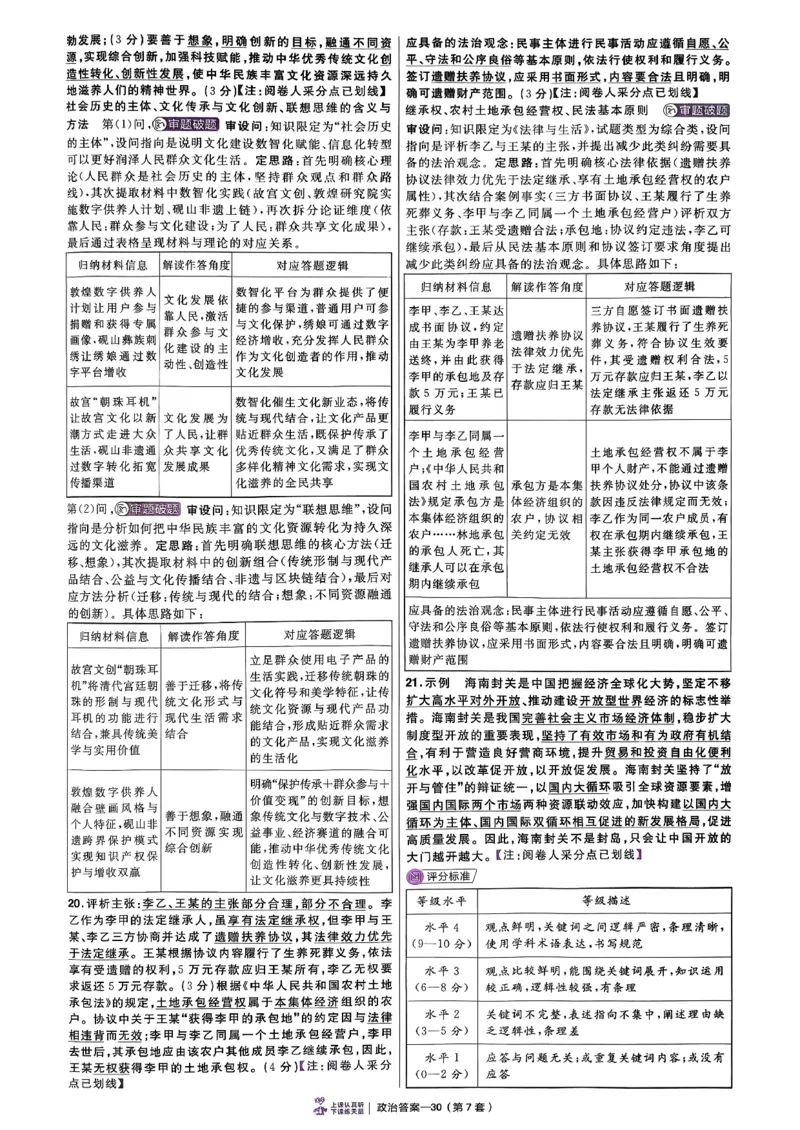 勃发展；(3 分)要善于想象，明确创新的目标，融通不同资
源，实现综合创新，加强科技赋能，推动中华优秀传统文化创
造性转化、创新性发展，使中华民族丰富文化资源深远持久
地滋养人们的精神世界。(3 分)【注：阅卷人采分点已划线】
社会历史的主体、文化传承与文化创新、联想思维的含义与
方法　第(1)问，审题破题 审设问：知识限定为“社会历史
的主体”，设问指向是说明文化建设数智化赋能、信息化转型
可以更好润泽人民群众文化生活。定思路：首先明确核心理
论(人民群众是社会历史的主体，坚持群众观点和群众路
线)，其次提取材料中数智化实践(故宫文创、敦煌研究院实
施数字供养人计划、砚山非遗上链)，再次拆分论证维度(依
靠人民：群众参与文化建设；为了人民：群众共享文化成果)，
最后通过表格呈现材料与理论的对应关系。
归纳材料信息　解读作答角度　对应答题逻辑
敦煌数字供养人
计划让用户参与
捐赠和获得专属
画像，砚山彝族刺
绣让绣娘通过数
字平台增收
文化发展依
靠人民，激活
群众参与文
化建设的主
动性、创造性
数智化平台为群众提供了便
捷的参与渠道，普通用户可参
与文化保护，绣娘可通过数字
经济增收，充分发挥人民群众
作为文化创造者的作用，推动
文化发展
故宫“朝珠耳机”
让故宫文化以新
潮方式走进大众
生活，砚山非遗通
过数字转化拓宽
传播渠道
文化发展为
了人民，让群
众共享文化
发展成果
数智化催生文化新业态，将传
统与现代结合，让文化产品更
贴近群众生活，既保护传承了
优秀传统文化，又满足了群众
多样化精神文化需求，实现文
化滋养的全民共享
第(2)问，审题破题 审设问：知识限定为“联想思维”，设问
指向是分析如何把中华民族丰富的文化资源转化为持久深
远的文化滋养。定思路：首先明确联想思维的核心方法(迁
移、想象)，其次提取材料中的创新组合(传统形制与现代产
品结合、公益与文化传播结合、非遗与区块链结合)，最后对
应方法分析(迁移：传统与现代的结合；想象：不同资源融通
的创新)。具体思路如下：
归纳材料信息　解读作答角度　对应答题逻辑
故宫文创“朝珠耳
机”将清代宫廷朝
珠的形制与现代
耳机的功能进行
结合，兼具传统美
学与实用价值
善于迁移，将传
统文化形式与
现代生活需求
结合
立足群众使用电子产品的
生活实践，迁移传统朝珠的
文化符号和美学特征，让传
统文化资源与现代产品功
能结合，形成贴近群众需求
的文化产品，实现文化滋养
的生活化
敦煌数字供养人
融合壁画风格与
个人特征，砚山非
遗跨界保护模式
实现知识产权保
护与增收双赢
善于想象，融通
不同资源实现
综合创新
明确“保护传承＋群众参与＋
价值变现”的创新目标，想
象传统文化与数字技术、公
益事业、经济赛道的融合可
能，推动中华优秀传统文化
创造性转化、创新性发展，
让文化滋养更具持续性
20. 评析主张：李乙、王某的主张部分合理，部分不合理。李
乙作为李甲的法定继承人，虽享有法定继承权，但李甲与王
某、李乙三方协商并达成了遗赠扶养协议，其法律效力优先
于法定继承。王某根据协议内容履行了生养死葬义务，依法
享有受遗赠的权利，5 万元存款应归王某所有，李乙无权要
求返还 5 万元存款。(3 分)根据《中华人民共和国农村土地
承包法》的规定，土地承包经营权属于本集体经济组织的农
户。协议中关于王某“获得李甲的承包地”的约定因与法律
相违背而无效；李甲与李乙同属一个土地承包经营户，李甲
去世后，其承包地应由该农户其他成员李乙继续承包，因此，
王某无权获得李甲的土地承包权。(4 分)【注：阅卷人采分
点已划线】
应具备的法治观念：民事主体进行民事活动应遵循自愿、公
平、守法和公序良俗等基本原则，依法行使权利和履行义务。
签订遗赠扶养协议，应采用书面形式，内容要合法且明确，明
确可遗赠财产范围。(3 分)【注：阅卷人采分点已划线】
继承权、农村土地承包经营权、民法基本原则　审题破题
审设问：知识限定为《法律与生活》，试题类型为综合类，设问
指向是评析李乙与王某的主张，并提出减少此类纠纷需要具
备的法治观念。定思路：首先明确核心法律依据(遗赠扶养
协议法律效力优先于法定继承、享有土地承包经营权的农户
属性)，其次结合案例事实(三方书面协议、王某履行了生养
死葬义务、李甲与李乙同属一个土地承包经营户)评析双方
主张(存款：王某受遗赠合法；承包地：协议约定违法，李乙可
继续承包)，最后从民法基本原则和协议签订要求角度提出
减少此类纠纷应具备的法治观念。具体思路如下：
归纳材料信息　解读作答角度　对应答题逻辑
李甲、李乙、王某达
成书面协议，约定
由王某为李甲养老
送终，并由此获得
李甲的承包地及存
款 5 万元；王某已
履行义务
遗赠扶养协议
法律效力优先
于法定继承，
存款应归王某
三方自愿签订书面遗赠扶
养协议，王某履行了生养死
葬义务，符合协议生效要
件，其受遗赠权利合法，5
万元存款应归王某，李乙以
法定继承主张返还 5 万元
存款无法律依据
李甲与李乙同属一
个土地承包经营
户；《中华人民共和
国农村土地承包
法》规定承包方是
本集体经济组织的
农户……林地承包
的承包人死亡，其
继承人可以在承包
期内继续承包
承包方是本集
体经济组织的
农户，协议相
关约定无效
土地承包经营权不属于李
甲个人财产，不能通过遗赠
扶养协议处分，协议中该条
款因违反法律规定而无效；
李乙作为同一农户成员，有
权在承包期内继续承包，王
某主张获得李甲承包地的
土地承包经营权不合法
应具备的法治观念：民事主体进行民事活动应遵循自愿、公平、
守法和公序良俗等基本原则，依法行使权利和履行义务。签订
遗赠扶养协议，应采用书面形式，内容要合法且明确，明确可遗
赠财产范围
21. 示例　海南封关是中国把握经济全球化大势，坚定不移
扩大高水平对外开放、推动建设开放型世界经济的标志性举
措。海南封关是我国完善社会主义市场经济体制，稳步扩大
制度型开放的重要表现，坚持了有效市场和有为政府有机结
合，有利于营造良好营商环境，提升贸易和投资自由化便利
化水平，以改革促开放，以开放促发展。海南封关坚持了“放
开与管住”的辩证统一，以国内大循环吸引全球资源要素，增
强国内国际两个市场两种资源联动效应，加快构建以国内大
循环为主体、国内国际双循环相互促进的新发展格局，促进
高质量发展。因此，海南封关不是封岛，只会让中国开放的
大门越开越大。【注：阅卷人采分点已划线】
评分标准
等级水平　等级描述
水平 4
(9—10 分)
观点鲜明，关键词之间逻辑严密，条理清晰，
使用学科术语表达，书写规范
水平 3
(6—8 分)
观点比较鲜明，能围绕关键词展开，知识运用
较正确，逻辑性较强，有条理
水平 2
(3—5 分)
关键词不完整，表述指向不集中，阐述理由缺
乏逻辑性，条理差
水平 1
(0—2 分)
应答与问题无关；或重复关键词内容；或没有
应答
上课认真听
下课练天星
政治答案—30 (第 7 套)